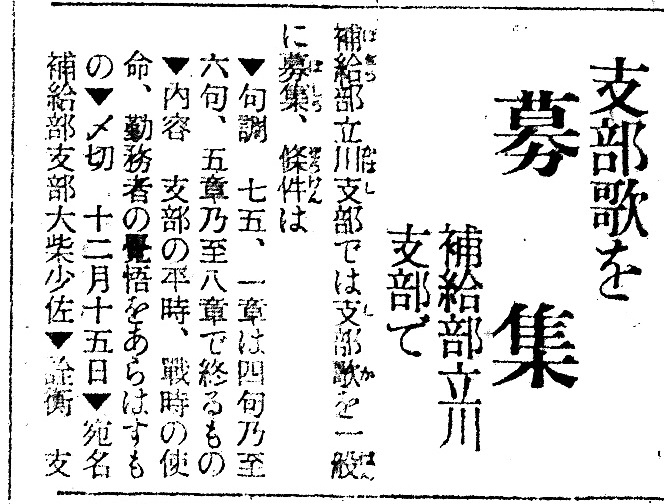 支部歌を
募集
補給部立川
支部で
補給部立川支部では支部歌を一般
に募集、條件は
▼句調　七五、一章は四句乃至
六句、五章乃至八章で終るもの
▼内容　支部の平時、戰時の使
命、勤務者の覺悟をあらはすも
の▼〆切　十二月十五日▼宛名
補給部支部大柴少佐▼詮衡　支